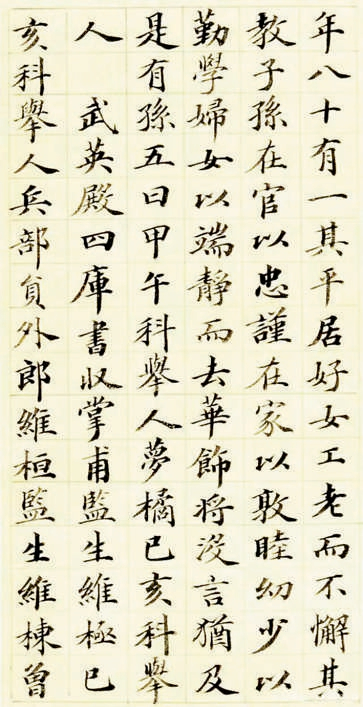 年八十有一其平居好女工老而不懈其
教子孫在官以忠謹在家以敦睦幼少以
勤學婦女以端靜而去華飾將沒言猶及
是有孫五曰甲午科舉人夢橘已亥科舉
人武英殿四庫書收掌甫監生維極已
亥科舉人兵部貟外郎維桓監生維棟曾